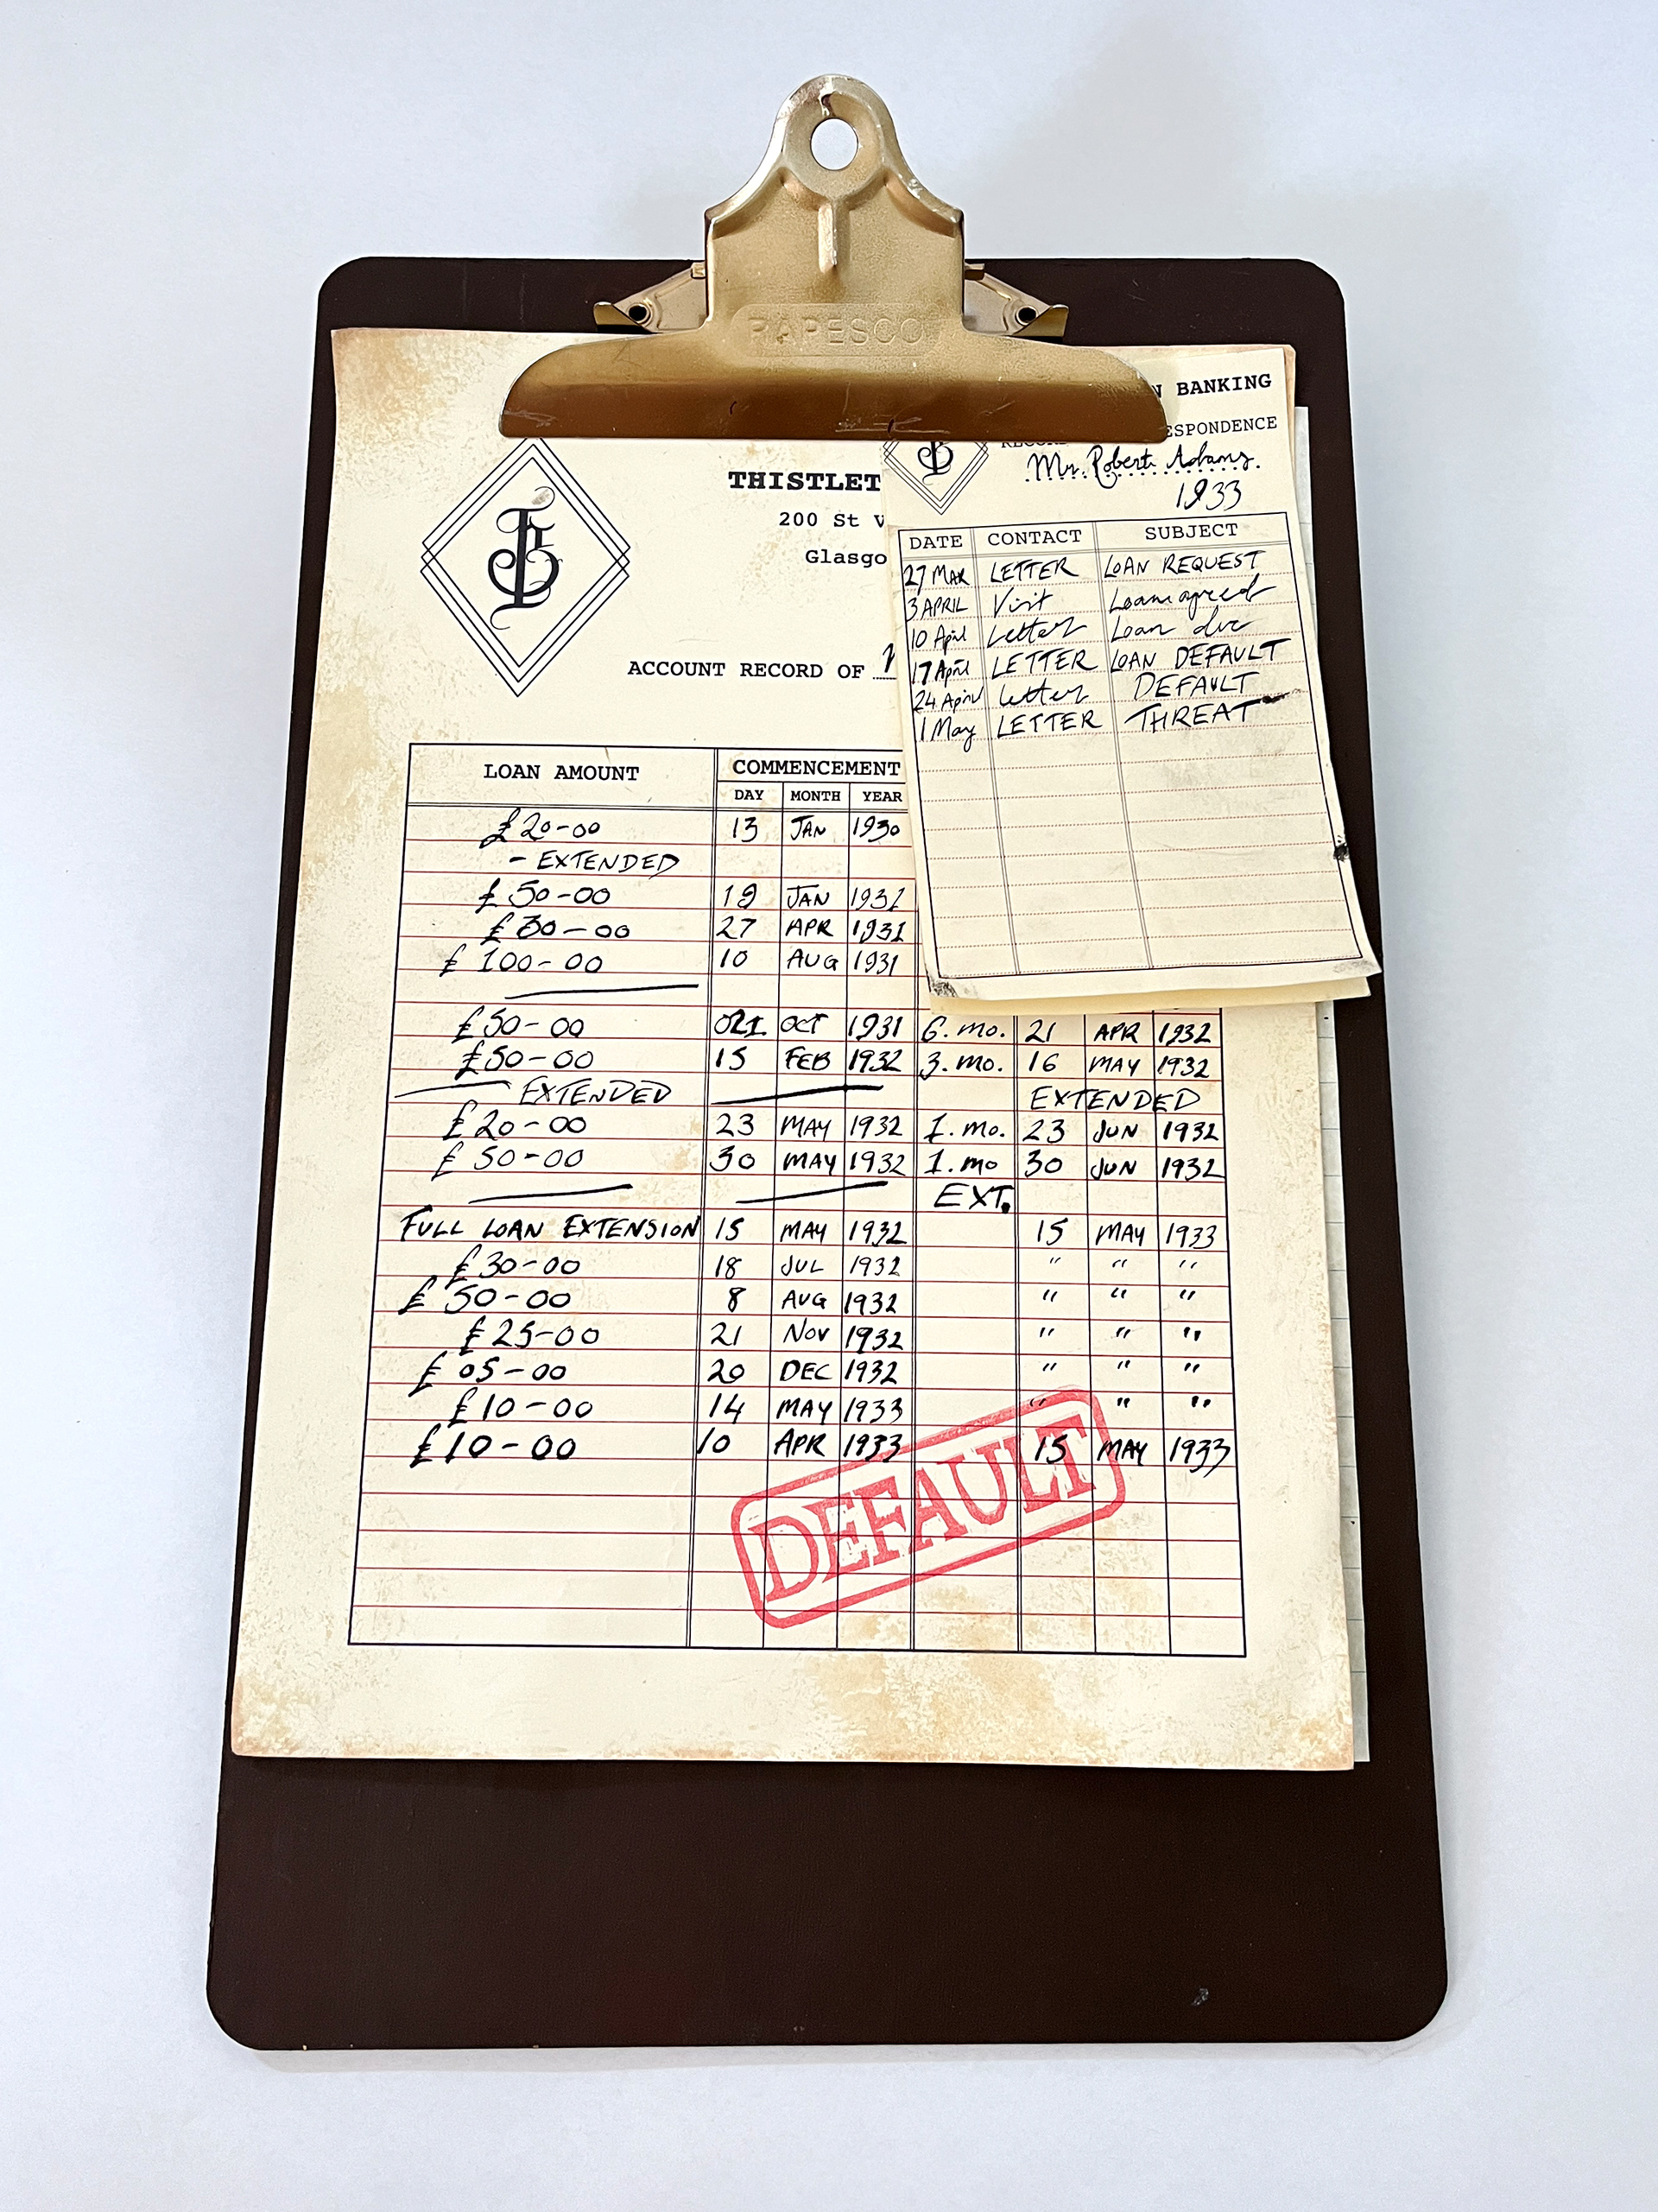 RAPESCO
BANKING
ESPONDENCE
Mr. Robert Adams
1933
DATE CONTACT SUBJECT
27 MAR LETTER LOAN REQUEST
3 APRIL Visit Loan agreed
10 April Letter Loan due
17 April LETTER LOAN DEFAULT
24 April letter DEFAULT
1 May LETTER THREAT
THISTLET
200 St V
Glasgo
ACCOUNT RECORD OF
LOAN AMOUNT COMMENCEMENT
DAY MONTH YEAR
£20-00 13 JAN 1930
- EXTENDED
£50-00 19 JAN 1931
£30-00 27 APR 1931
£100-00 10 AUG 1931
£50-00 021. OCT 1931 6. mo. 21 APR 1932
£50-00 15 FEB 1932 3. mo. 16 MAY 1932
EXTENDED EXTENDED
£20-00 23 MAY 1932 1. mo. 23 JUN 1932
£50-00 30 MAY 1932 1. mo 30 JUN 1932
EXT.
FULL LOAN EXTENSION 15 MAY 1932 15 MAY 1933
£30-00 18 JUL 1932 " " "
£50-00 8 AUG 1932 " " "
£25-00 21 NOV 1932 " " "
£05-00 20 DEC 1932 " " "
£10-00 14 MAY 1933 " " "
£10-00 10 APR 1933 15 MAY 1933
DEFAULT